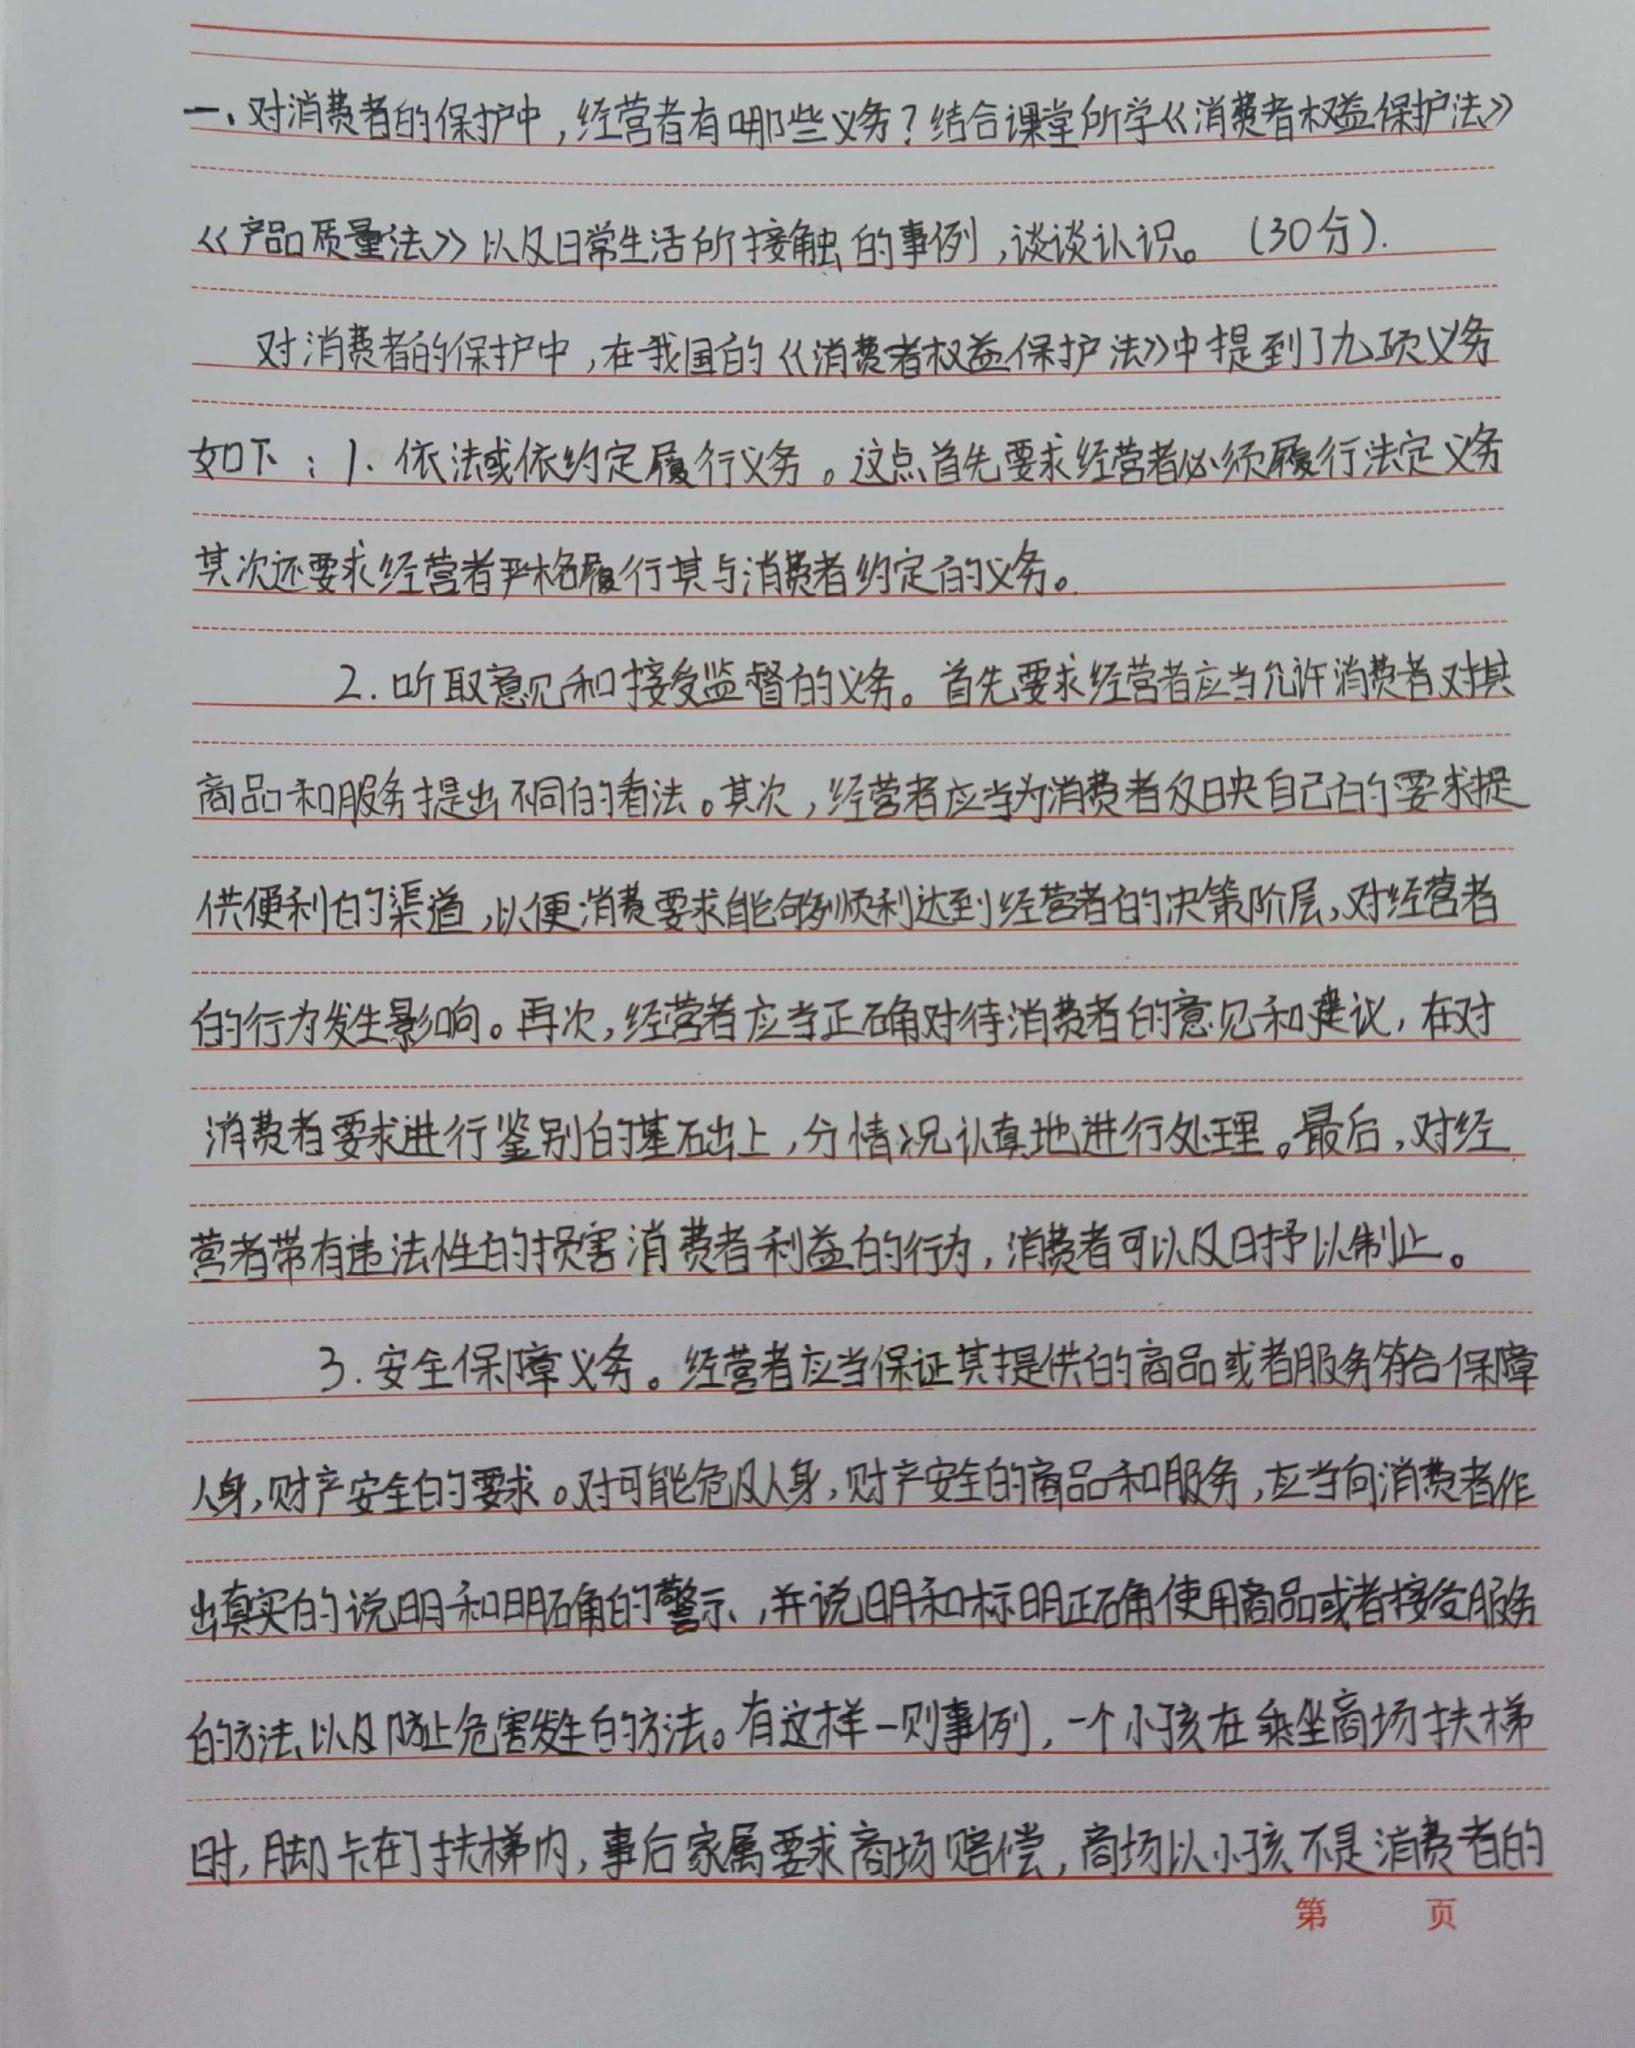 一、对消费者的保护中,经营者有哪些义务?结合课堂所学《消费者权益保护法》
《产品质量法》以及日常生活所接触的事例,谈谈认识。(30分).
对消费者的保护中,在我国的《消费者权益保护法》中提到了九项义务
如下:1、依法或依约定履行义务。这点首先要求经营者必须履行法定义务
其次还要求经营者严格履行其与消费者约定的义务。
2.听取意见和接受监督的义务。首先要求经营者应当允许消费者对其
商品和服务提出不同的看法。其次,经营者应当为消费者反映自己的要求提
供便利的渠道,以便消费要求能够顺利达到经营者的决策阶层,对经营者
的行为发生影响。再次,经营者应当正确对待消费者的意见和建议,在对
消费者要求进行鉴别的基础上,分情况认真地进行处理。最后,对经
营者带有违法性的损害消费者利益的行为,消费者可以及日予以制止。
3.安全保障义务。经营者应当保证其提供的商品或者服务符合保障
人身,财产安全的要求。对可能危及人身,财产安全的商品和服务,应当向消费者作
出真实的说明和明确的警示,并说明和标明正确使用商品或者接受服务
的方法、以及防止危害发生的方法。有这样一则事例,一个小孩在乘坐商场扶梯
时,脚卡在了扶梯内,事后家属要求商场赔偿,商场以小孩不是消费者的
第 页